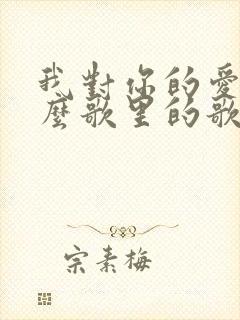 我對你的愛
麼歌里的歌
宗素梅